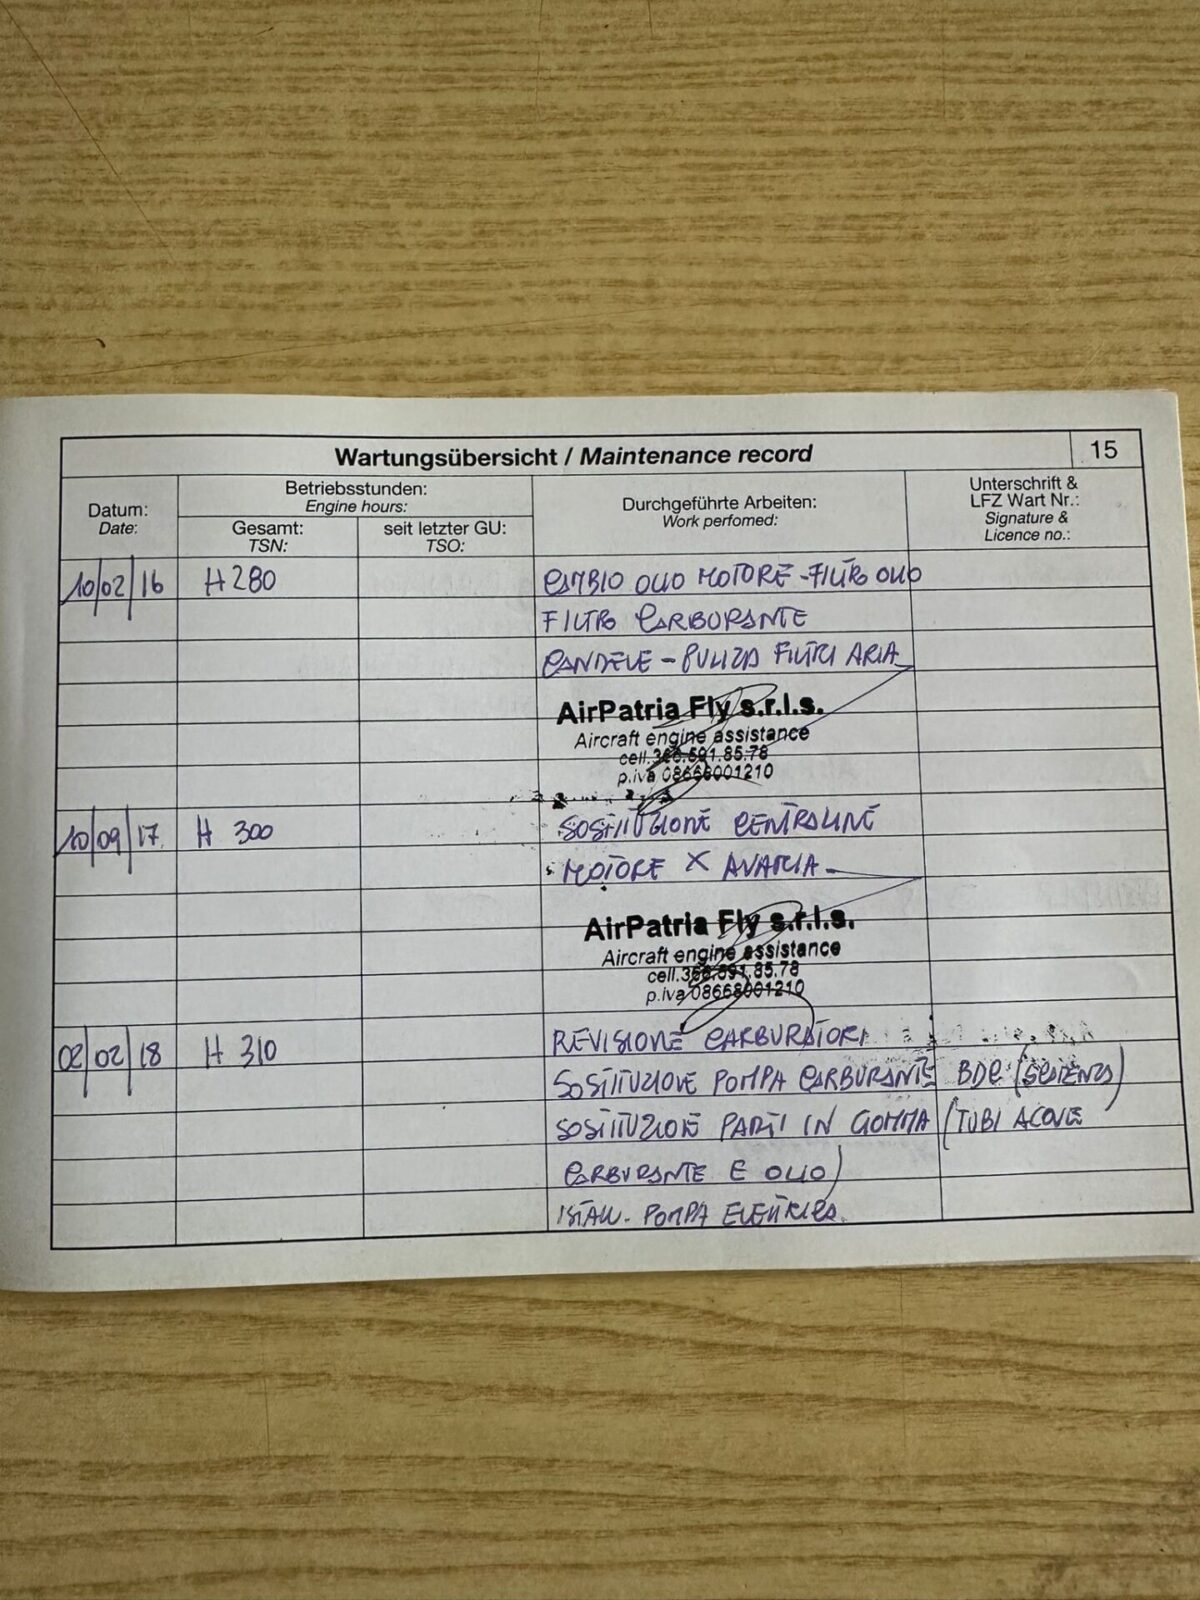 Wartungsübersicht / Maintenance record 15
Datum:
Date:
Betriebsstunden:
Engine hours:
Gesamt:
TSN:
seit letzter GU:
TSO:
Durchgeführte Arbeiten:
Work perfomed:
Unterschrift &
LFZ Wart Nr.:
Signature &
Licence no.:
10/02/16 H 280 CAMBIO OLIO MOTORE - FILTRO OLIO
FILTRO CARBURANTE
CANDELE - PULIZIA FILTRI ARIA
AirPatria Fly s.r.l.s.
Aircraft engine assistance
cell. .591.85.78
p.iva 08668001210
10/09/17 H 300 SOSTITUZIONE CENTRALINE
MOTORE X AVARIA
AirPatria Fly s.r.l.s.
Aircraft engine assistance
cell. .591.85.78
p.iva 08668001210
02/02/18 H 310 REVISIONE CARBURATORI
SOSTITUZIONE POMPA CARBURANTE BDC (SCADENZA)
SOSTITUZIONE PARTI IN GOMMA (TUBI ACQUE
CARBURANTE E OLIO)
ISTALL. POMPA ELETTRICA.